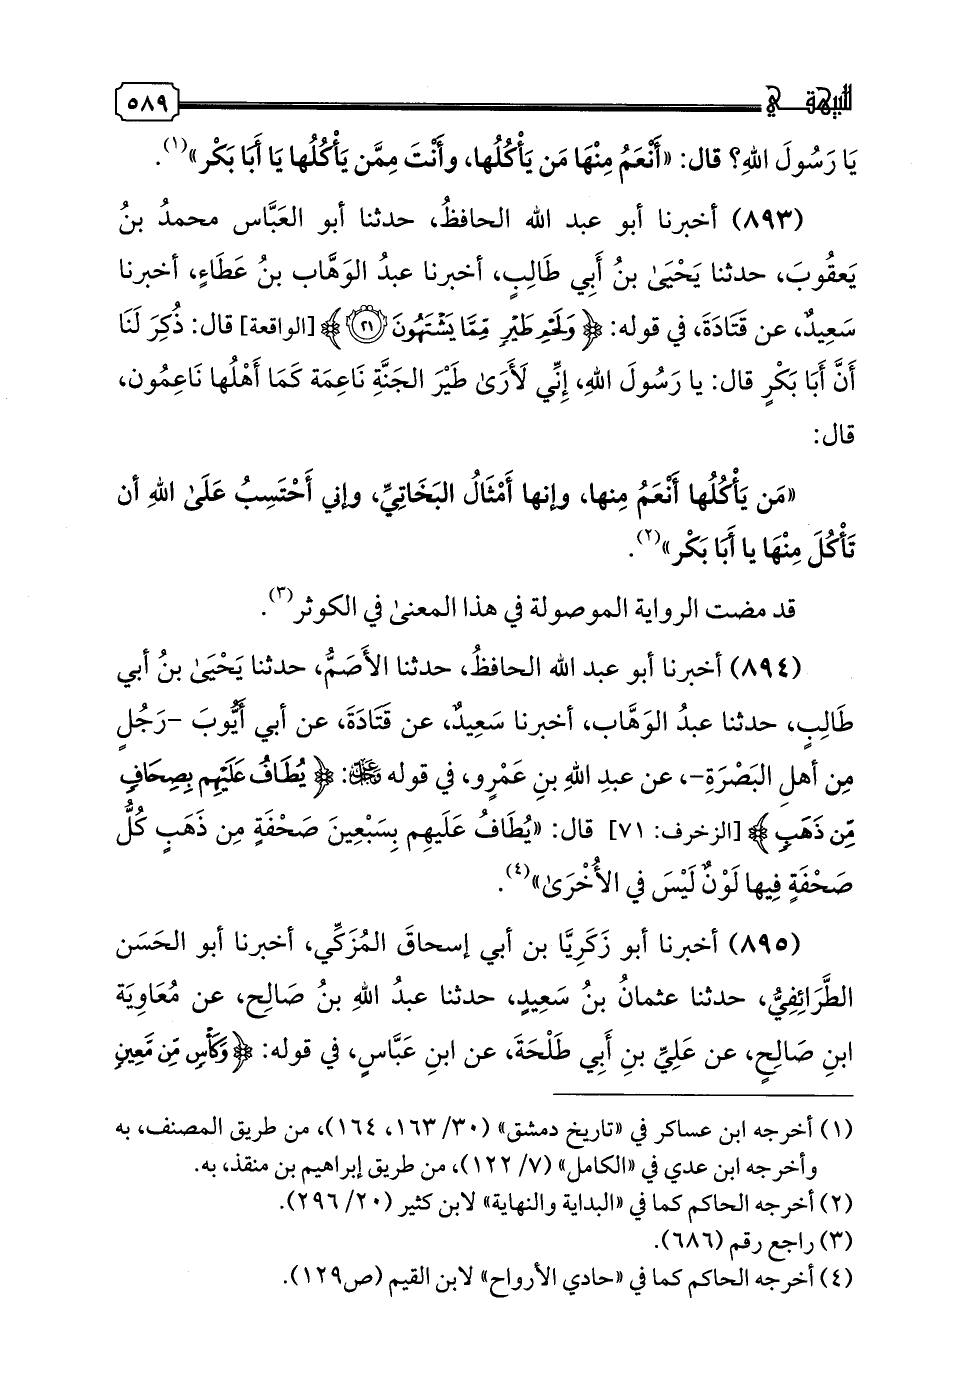 للبيهقي
٥٨٩
يَا رَسُولَ اللهِ؟ قال: «أَنْعَمُ مِنْهَا مَن يَأْكُلُها، وأَنْتَ مِمَّن يَأْكُلُها يَا أَبَا بَكْر»(١).
(٨٩٣) أخبرنا أبو عبد الله الحافظُ، حدثنا أبو العَبَّاس محمدُ بنُ
يَعقُوبَ، حدثنا يَحْيَىٰ بنُ أَبِي طَالِبٍ، أخبرنا عبدُ الوَهَّاب بنُ عَطَاءٍ، أخبرنا
سَعِيدٌ، عن قَتَادَةَ، في قوله: ﴿وَلَحْمِ طَيْرٍ مِّمَّا يَشْتَهُونَ ٢١﴾ [الواقعة] قال: ذُكِرَ لَنَا
أَنَّ أَبَا بَكْرٍ قال: يا رَسُولَ اللهِ، إِنِّي لَأَرَىٰ طَيْرَ الجَنَّةِ نَاعِمَة كَمَا أَهْلُها نَاعِمُون،
قال:
«مَن يَأْكُلُها أَنْعَمُ مِنها، وإنها أَمْثَالُ البَخَاتِيِّ، وإني أَحْتَسِبُ عَلَىٰ اللهِ أن
تَأْكُلَ مِنْهَا يا أَبَا بَكْر»(٢).
قد مضت الرواية الموصولة في هذا المعنىٰ في الكوثر(٣).
(٨٩٤) أخبرنا أبو عبد الله الحافظُ، حدثنا الأَصَمُّ، حدثنا يَحْيَىٰ بنُ أبي
طَالِبٍ، حدثنا عبدُ الوَهَّاب، أخبرنا سَعِيدٌ، عن قَتَادَةَ، عن أبي أَيُّوبَ -رَجُلٍ
مِن أهلِ البَصْرَةِ-، عن عبدِ اللهِ بنِ عَمْرٍو، في قوله ﷿: ﴿يُطَافُ عَلَيْهِم بِصِحَافٍ
مِّن ذَهَبٍ﴾ [الزخرف: ٧١] قال: «يُطَافُ عَلَيهِم بِسَبْعِينَ صَحْفَةٍ مِن ذَهَبٍ كُلُّ
صَحْفَةٍ فِيها لَوْنٌ لَيْسَ في الأُخْرَىٰ»(٤).
(٨٩٥) أخبرنا أبو زَكَرِيَّا بن أبي إسحاقَ المُزَكِّي، أخبرنا أبو الحَسَن
الطَّرَائِفِيُّ، حدثنا عثمانُ بنُ سَعِيدٍ، حدثنا عبدُ اللهِ بنُ صَالِحٍ، عن مُعَاوِيَةَ
ابنِ صَالِحٍ، عن عَلِيِّ بنِ أَبِي طَلْحَةَ، عن ابنِ عَبَّاسٍ، في قوله: ﴿وَكَأْسٍ مِّن مَّعِينٍ
(١) أخرجه ابن عساكر في «تاريخ دمشق» (٣٠/ ١٦٣، ١٦٤)، من طريق المصنف، به
وأخرجه ابن عدي في «الكامل» (٧/ ١٢٢)، من طريق إبراهيم بن منقذ، به.
(٢) أخرجه الحاكم كما في «البداية والنهاية» لابن كثير (٢٠/ ٢٩٦).
(٣) راجع رقم (٦٨٦).
(٤) أخرجه الحاكم كما في «حادي الأرواح» لابن القيم (ص١٢٩).